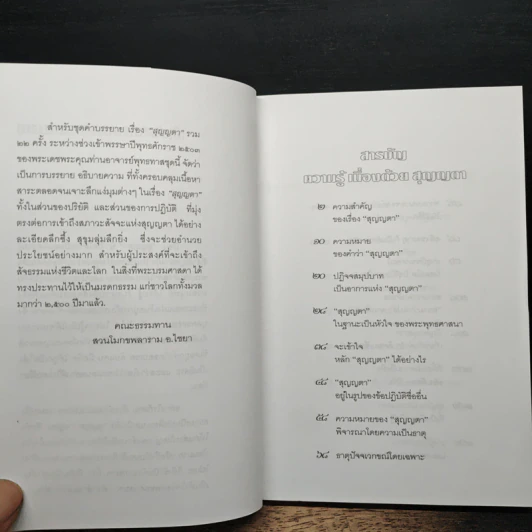 สำหรับชุดคำบรรยาย เรื่อง "สุญญตา" รวม
๒๒ ครั้ง ระหว่างช่วงเข้าพรรษาปีพุทธศักราช ๒๕๐๓
ของพระเดชพระคุณท่านอาจารย์พุทธทาสชุดนี้ จัดว่า
เป็นการบรรยาย อธิบายความ ที่ทั้งครอบคลุมเนื้อหา
สาระตลอดจนเจาะลึกแง่มุมต่างๆ ในเรื่อง "สุญญตา"
ทั้งในส่วนของปริยัติ และส่วนของการปฏิบัติ ที่มุ่ง
ตรงต่อการเข้าถึงสภาวะสัจจะแห่งสุญญตา ได้อย่าง
ละเอียดลึกซึ้ง สุขุมลุ่มลึกยิ่ง ซึ่งจะช่วยอำนวย
ประโยชน์อย่างมาก สำหรับผู้ประสงค์ที่จะเข้าถึง
สัจธรรมแห่งชีวิตและโลก ในสิ่งที่พระบรมศาสดา ได้
ทรงประทานไว้ให้เป็นมรดกธรรม แก่ชาวโลกทั้งมวล
มากว่า ๒,๕๐๐ ปีมาแล้ว.
คณะธรรมทาน
สวนโมกขพลาราม อ.ไชยา
สารบัญ
ความรู้ เรื่องด้วย สุญญตา
๒ ความสำคัญ
ของเรื่อง "สุญญตา"
๑๐ ความหมาย
ของคำว่า "สุญญตา"
๒๐ ปฏิจจสมุปบาท
เป็นอาการแห่ง "สุญญตา"
๒๘ "สุญญตา"
ในฐานะเป็นหัวใจ ของพระพุทธศาสนา
๓๘ จะเข้าใจ
หลัก "สุญญตา" ได้อย่างไร
๔๘ "สุญญตา"
อยู่ในรูปของข้อปฏิบัติชื่ออื่น
๕๘ ความหมายของ "สุญญตา"
พิจารณาโดยความเป็นธาตุ
๖๘ ธาตุปัจจเวกขณ์โดยเฉพาะ